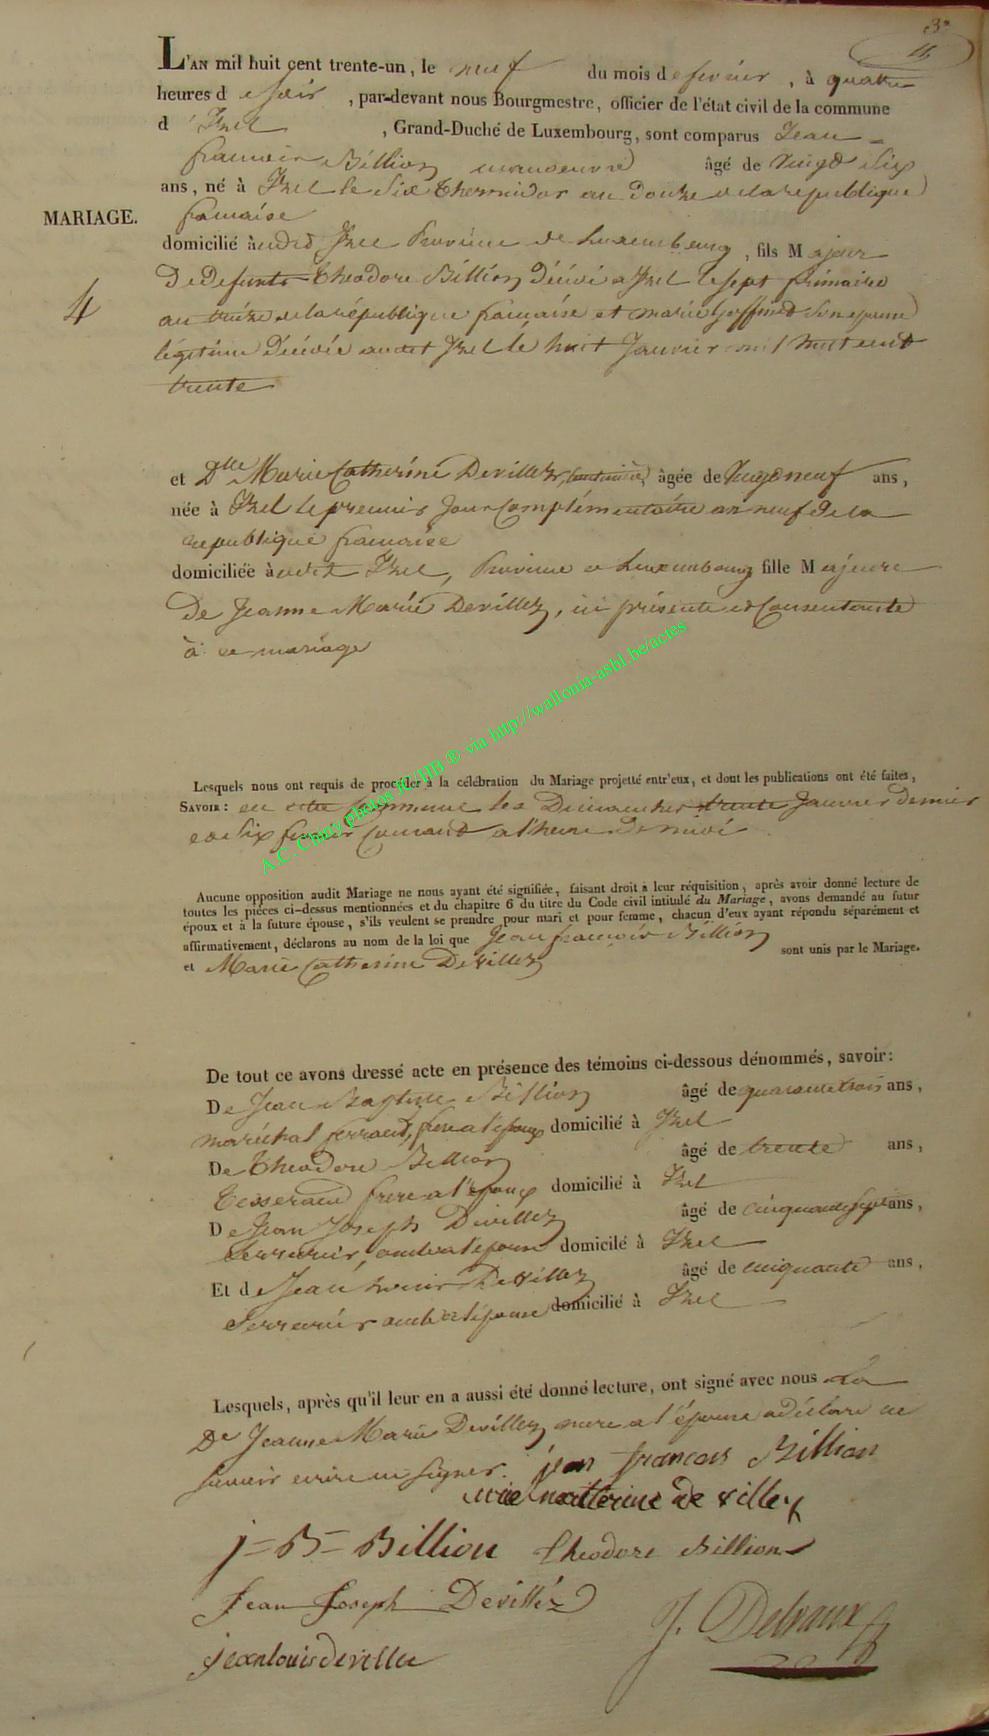 L'AN mil huit cent trente-un, le neuf du mois de fevrier, à quatre
heures de soir, par-devant nous Bourgmestre, officier de l'état civil de la commune
d'Izel, Grand-Duché de Luxembourg, sont comparus Jean =
francois Billion manoeuvre âgé de vingt six
ans, né à Izel le six thermidor an douze de la republique
francaise
MARIAGE.
domicilié à audit Izel Province de Luxembourg, fils Majeur
4
De Defunts Theodore Billion Décédé a Izel le sept frimaire
an treize de la république francaise et marie Goffinet son epouse
légitime Décédée audit Izel le huit Janvier mil huit cent
trente
et Dlle Marie Catherine Devillez, âgée de vingt neuf ans,
née à Izel le premier Jour Complémentaire an neuf de la
republique francaise
domiciliée à audit Izel, Province de Luxembourg fille Majeure
De Jeanne Marie Devillez, ici présente et Consentante
à ce mariage
A.C. Chiny photos JC/HB ® via http://wallonia-asbl.be/actes
Lesquels nous ont requis de procéder à la célébration du Mariage projetté entr'eux, et dont les publications ont été faites,
SAVOIR : en cette Commune les Dimanches trente Janvier dernier
et six fevrier Courant a l'heure de midi
Aucune opposition audit Mariage ne nous ayant été signifiée, faisant droit à leur réquisition, après avoir donné lecture de
toutes les pièces ci-dessus mentionnées et du chapitre 6 du titre du Code civil intitulé du Mariage, avons demandé au futur
époux et à la future épouse, s'ils veulent se prendre pour mari et pour femme, chacun d'eux ayant répondu séparément et
affirmativement, déclarons au nom de la loi que Jean francois Billion
et Marie Catherine Devillez sont unis par le Mariage.
De tout ce avons dressé acte en présence des témoins ci-dessous dénommés, savoir:
De Jean Baptiste Billion âgé de quarante trois ans,
maréchal ferrant, frere a l'epoux domicilié à Izel
De Theodore Billion âgé de trente ans,
tisserand frere a l'epoux domicilié à Izel
De Jean Joseph Devillez âgé de cinquante sept ans,
serrurier, oncle a l'epouse domicilé à Izel
Et de Jean Louis Devillez âgé de cinquante ans,
serrurier oncle a l'épouse domicilié à Izel
Lesquels, après qu'il leur en a aussi été donné lecture, ont signé avec nous La
De Jeanne Marie Devillez mere a l'épouse a déclaré ne
savoir ecrire ni signer. jean francois Billion
marie catterine de villez
j=B= Billion theodore Billion
Jean Joseph Devillez
J. Delvaux
jean louis deville